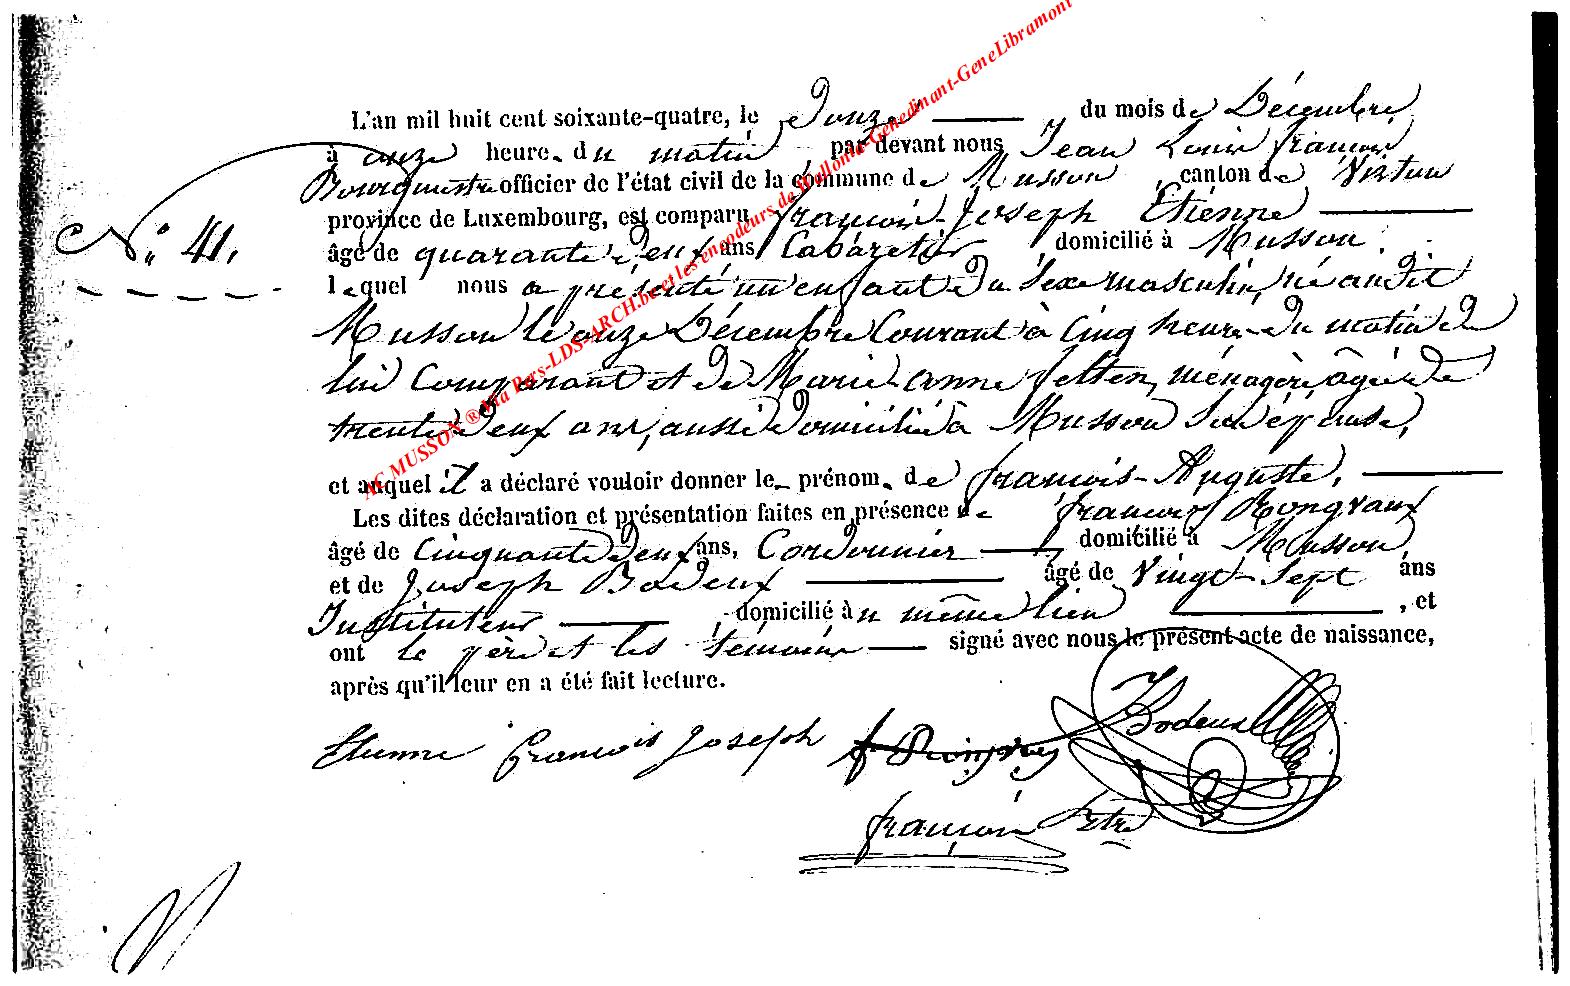 L'an mil huit cent soixante-quatre, le Douze du mois de Décembre
à onze heure du matin, par devant nous Jean Louis François
Bourgmestre officier de l'état civil de la commune de Musson, canton de Virton
province de Luxembourg, est comparu François-Joseph Etienne
N° 41.
âgé de quarante deux ans Cabaretier domicilié à Musson,
lequel nous a présenté un enfant du Sexe masculin, né audit
Musson le onze Décembre Courant à Cinq heures du matin de
lui Comparant et de Marie-Anne Fetten, ménagère, âgée de
trente deux ans, aussi domiciliée à Musson Son épouse,
et auquel il a déclaré vouloir donner le prénom de François-Auguste,
Les dites déclaration et présentation faites en présence de François Rongvaux
âgé de Cinquante deux ans, Cordonnier domicilié à Musson,
et de Joseph Bodeux âgé de Vingt-Sept ans
Instituteur, domicilié au même lieu, et
ont le père et les témoins signé avec nous le présent acte de naissance,
après qu'il leur en a été fait lecture.
Etienne François Joseph
Bodeux
François
AC MUSSON ® Via Pers-LDS-ARCH.be et les encodeurs de Wallonia-Genedinant-GeneLibramont